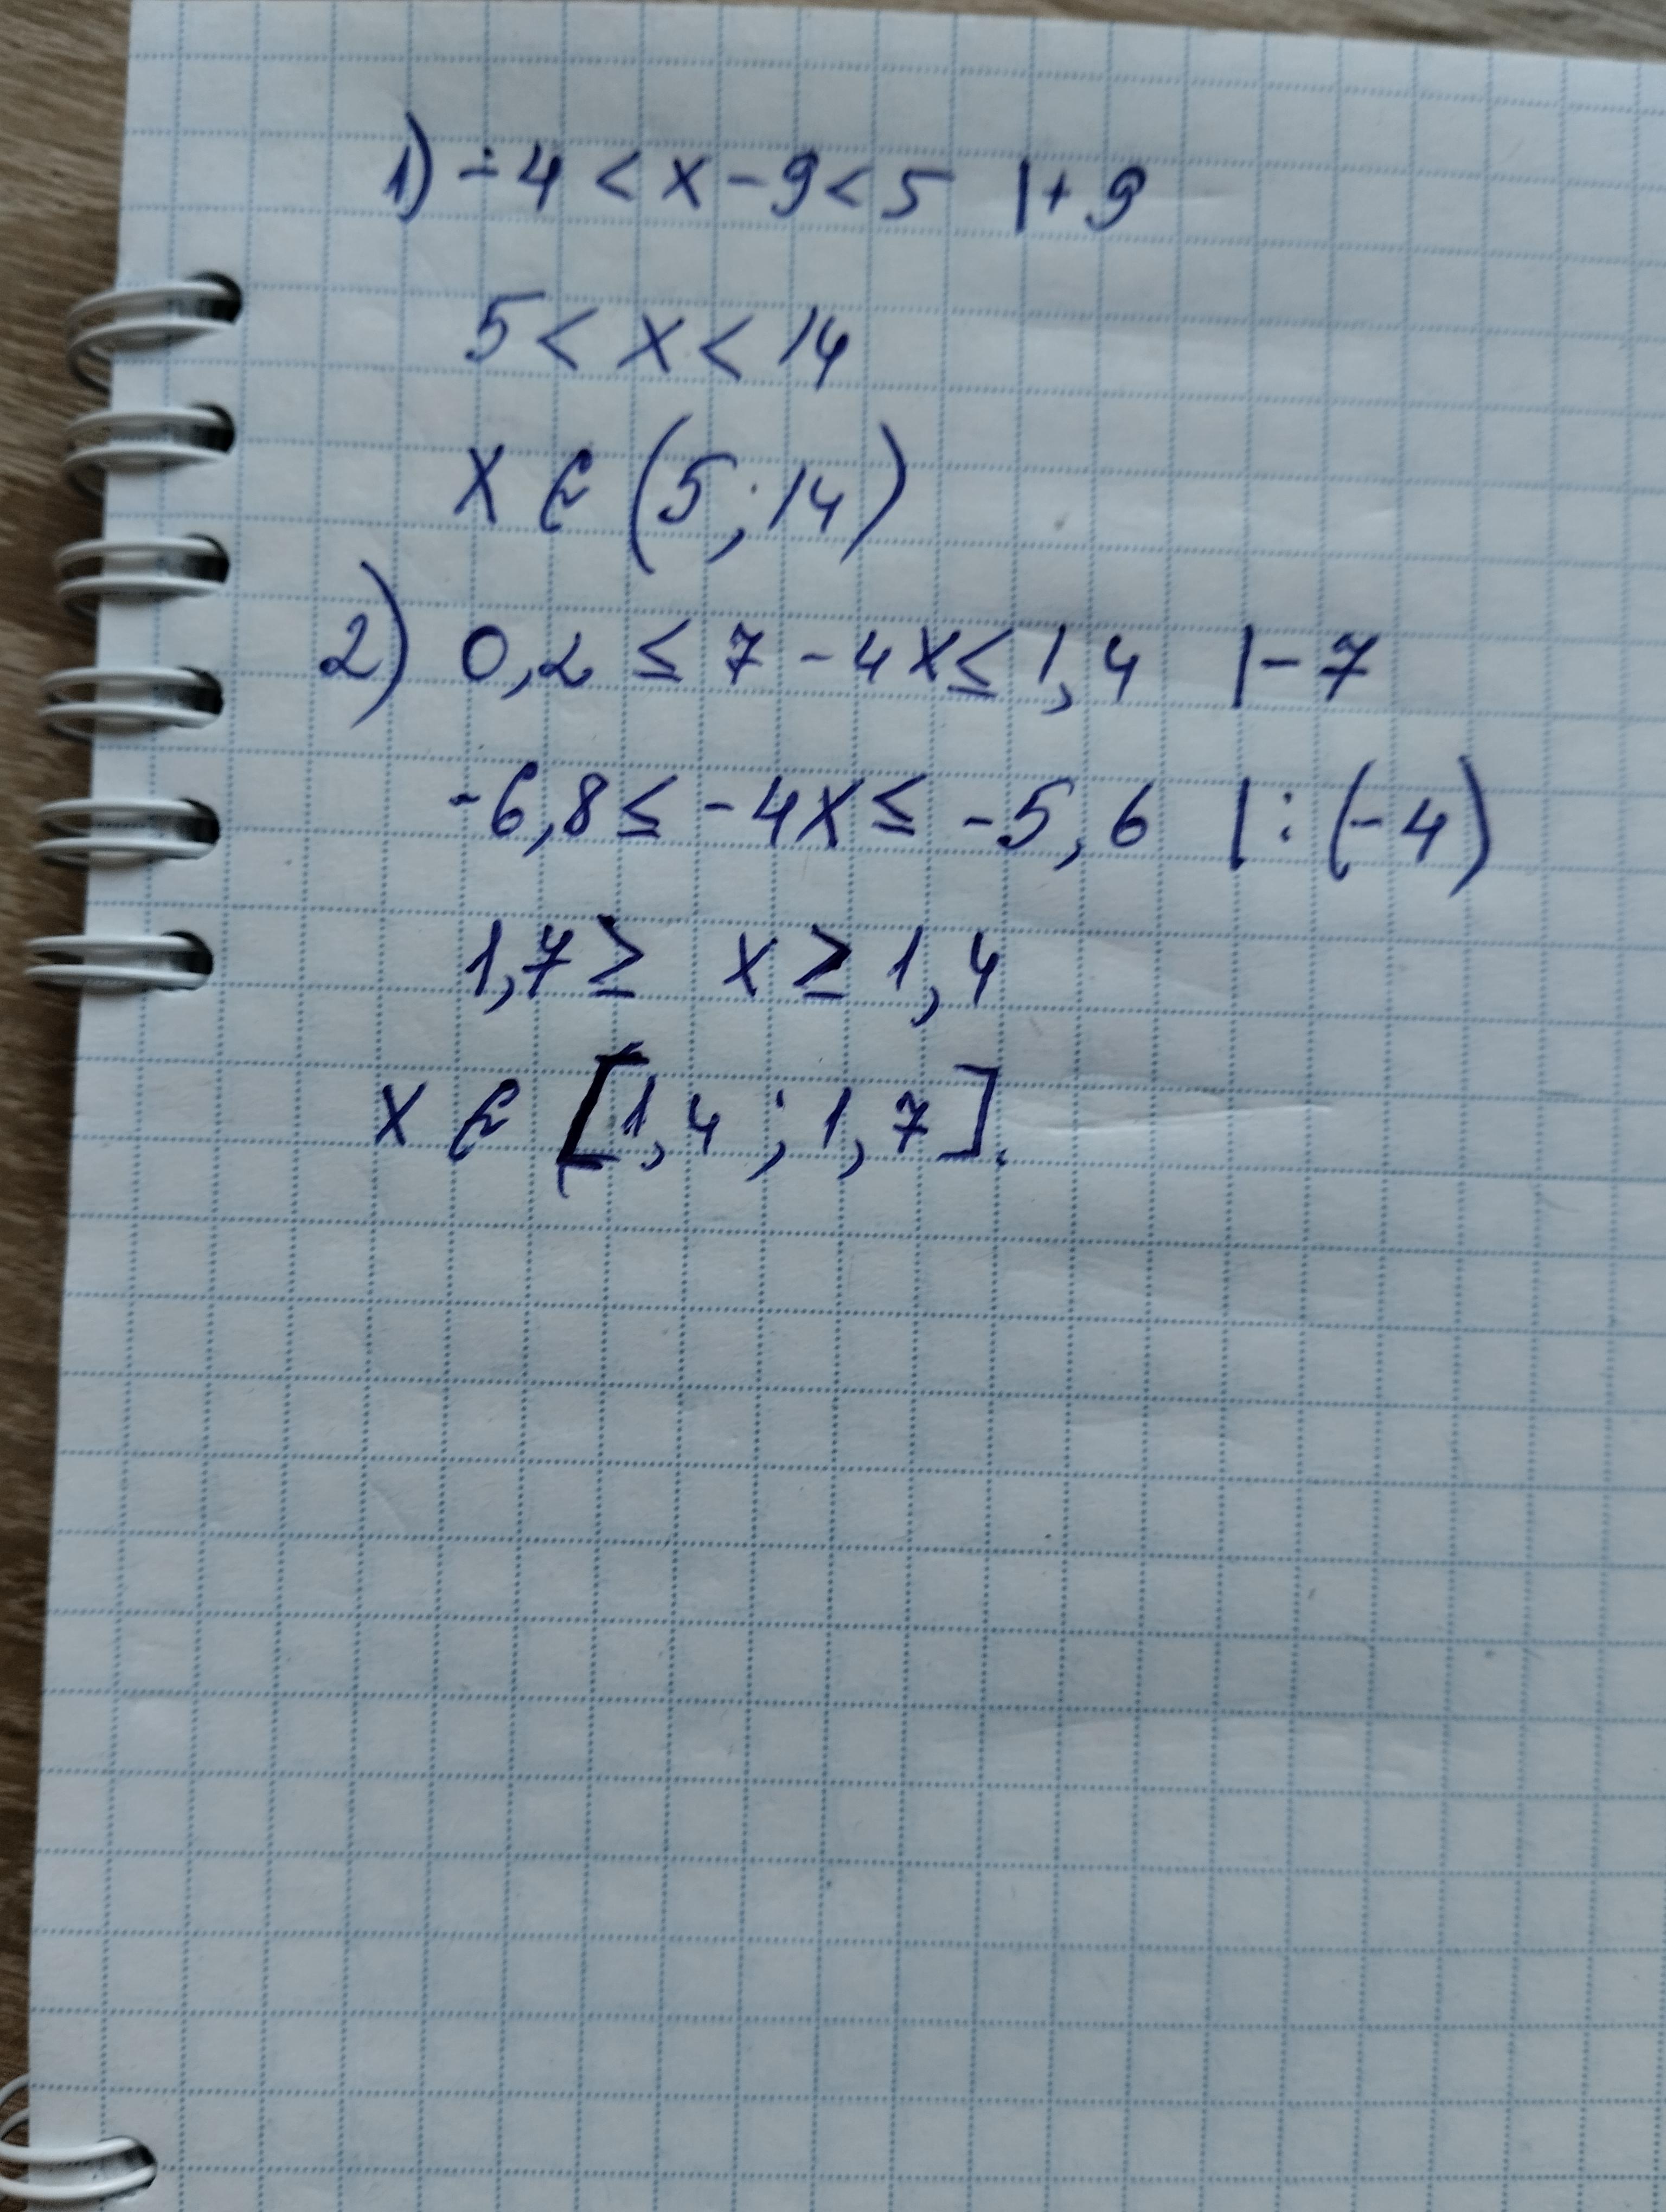 1) -4 < x - 9 < 5 |+ 9
5 < x < 14
x ∈ (5 ; 14)
2) 0,2 ≤ 7 - 4x ≤ 1,4 |- 7
-6,8 ≤ -4x ≤ -5,6 | : (-4)
1,7 ≥ x ≥ 1,4
x ∈ [1,4 ; 1,7].